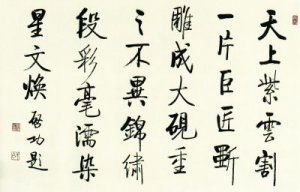 天上紫雲割
一片巨匠斲
雕成大硯重
之不異錦繡
段彩毫濡染
星文煥 启功題